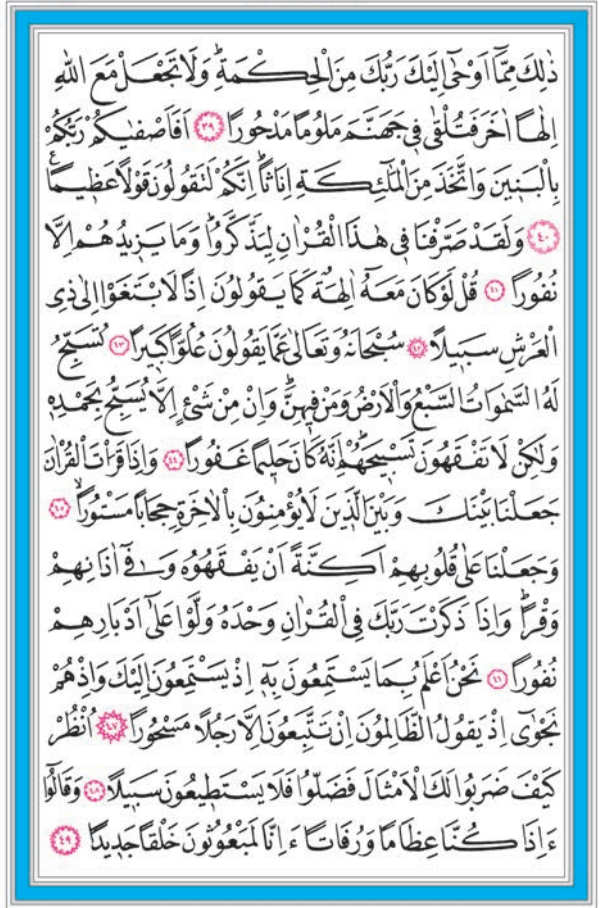 ذٰلِكَ مِمَّٓا اَوْحٰٓى اِلَيْكَ رَبُّكَ مِنَ الْحِكْمَةِۜ وَلَا تَجْعَلْ مَعَ اللّٰهِ
اِلٰهاً اٰخَرَ فَتُلْقٰى ف۪ي جَهَنَّمَ مَلُوماً مَدْحُوراً ﴿٣٩﴾ اَفَاَصْفٰيكُمْ رَبُّكُمْ
بِالْبَن۪ينَ وَاتَّخَذَ مِنَ الْمَلٰٓئِكَةِ اِنَاثاًۜ اِنَّكُمْ لَتَقُولُونَ قَوْلاً عَظ۪يماًۚ
﴿٤٠﴾ وَلَقَدْ صَرَّفْنَا ف۪ي هٰذَا الْقُرْاٰنِ لِيَذَّكَّرُواۜ وَمَا يَز۪يدُهُمْ اِلَّا
نُفُوراً ﴿٤١﴾ قُلْ لَوْ كَانَ مَعَهُٓ اٰلِهَةٌ كَمَا يَقُولُونَ اِذاً لَابْتَغَوْا اِلٰى ذِي
الْعَرْشِ سَب۪يلاً ﴿٤٢﴾ سُبْحَانَهُ وَتَعَالٰى عَمَّا يَقُولُونَ عُلُواًّ كَب۪يراً ﴿٤٣﴾ تُسَبِّحُ
لَهُ السَّمٰوَاتُ السَّبْعُ وَالْاَرْضُ وَمَنْ ف۪يهِنَّۜ وَاِنْ مِنْ شَيْءٍ اِلَّا يُسَبِّحُ بِحَمْدِه۪
وَلٰكِنْ لَا تَفْقَهُونَ تَسْب۪يحَهُمْۜ اِنَّهُ كَانَ حَل۪يماً غَفُوراً ﴿٤٤﴾ وَاِذَا قَرَأْتَ الْقُرْاٰنَ
جَعَلْنَا بَيْنَكَ وَبَيْنَ الَّذ۪ينَ لَا يُؤْمِنُونَ بِالْاٰخِرَةِ حِجَاباً مَسْتُوراًۙ ﴿٤٥﴾
وَجَعَلْنَا عَلٰى قُلُوبِهِمْ اَكِنَّةً اَنْ يَفْقَهُوهُ وَف۪ٓي اٰذَانِهِمْ
وَقْراًۜ وَاِذَا ذَكَرْتَ رَبَّكَ فِي الْقُرْاٰنِ وَحْدَهُ وَلَّوْا عَلٰٓى اَدْبَارِهِمْ
نُفُوراً ﴿٤٦﴾ نَحْنُ اَعْلَمُ بِمَا يَسْتَمِعُونَ بِه۪ٓ اِذْ يَسْتَمِعُونَ اِلَيْكَ وَاِذْ هُمْ
نَجْوٰٓى اِذْ يَقُولُ الظَّالِمُونَ اِنْ تَتَّبِعُونَ اِلَّا رَجُلاً مَسْحُوراً ﴿٤٧﴾ اُنْظُرْ
كَيْفَ ضَرَبُوا لَكَ الْاَمْثَالَ فَضَلُّوا فَلَا يَسْتَط۪يعُونَ سَب۪يلاً ﴿٤٨﴾ وَقَالُٓوا
ءَاِذَا كُنَّا عِظَاماً وَرُفَاتاً ءَاِنَّا لَمَبْعُوثُونَ خَلْقاً جَد۪يداً ﴿٤٩﴾